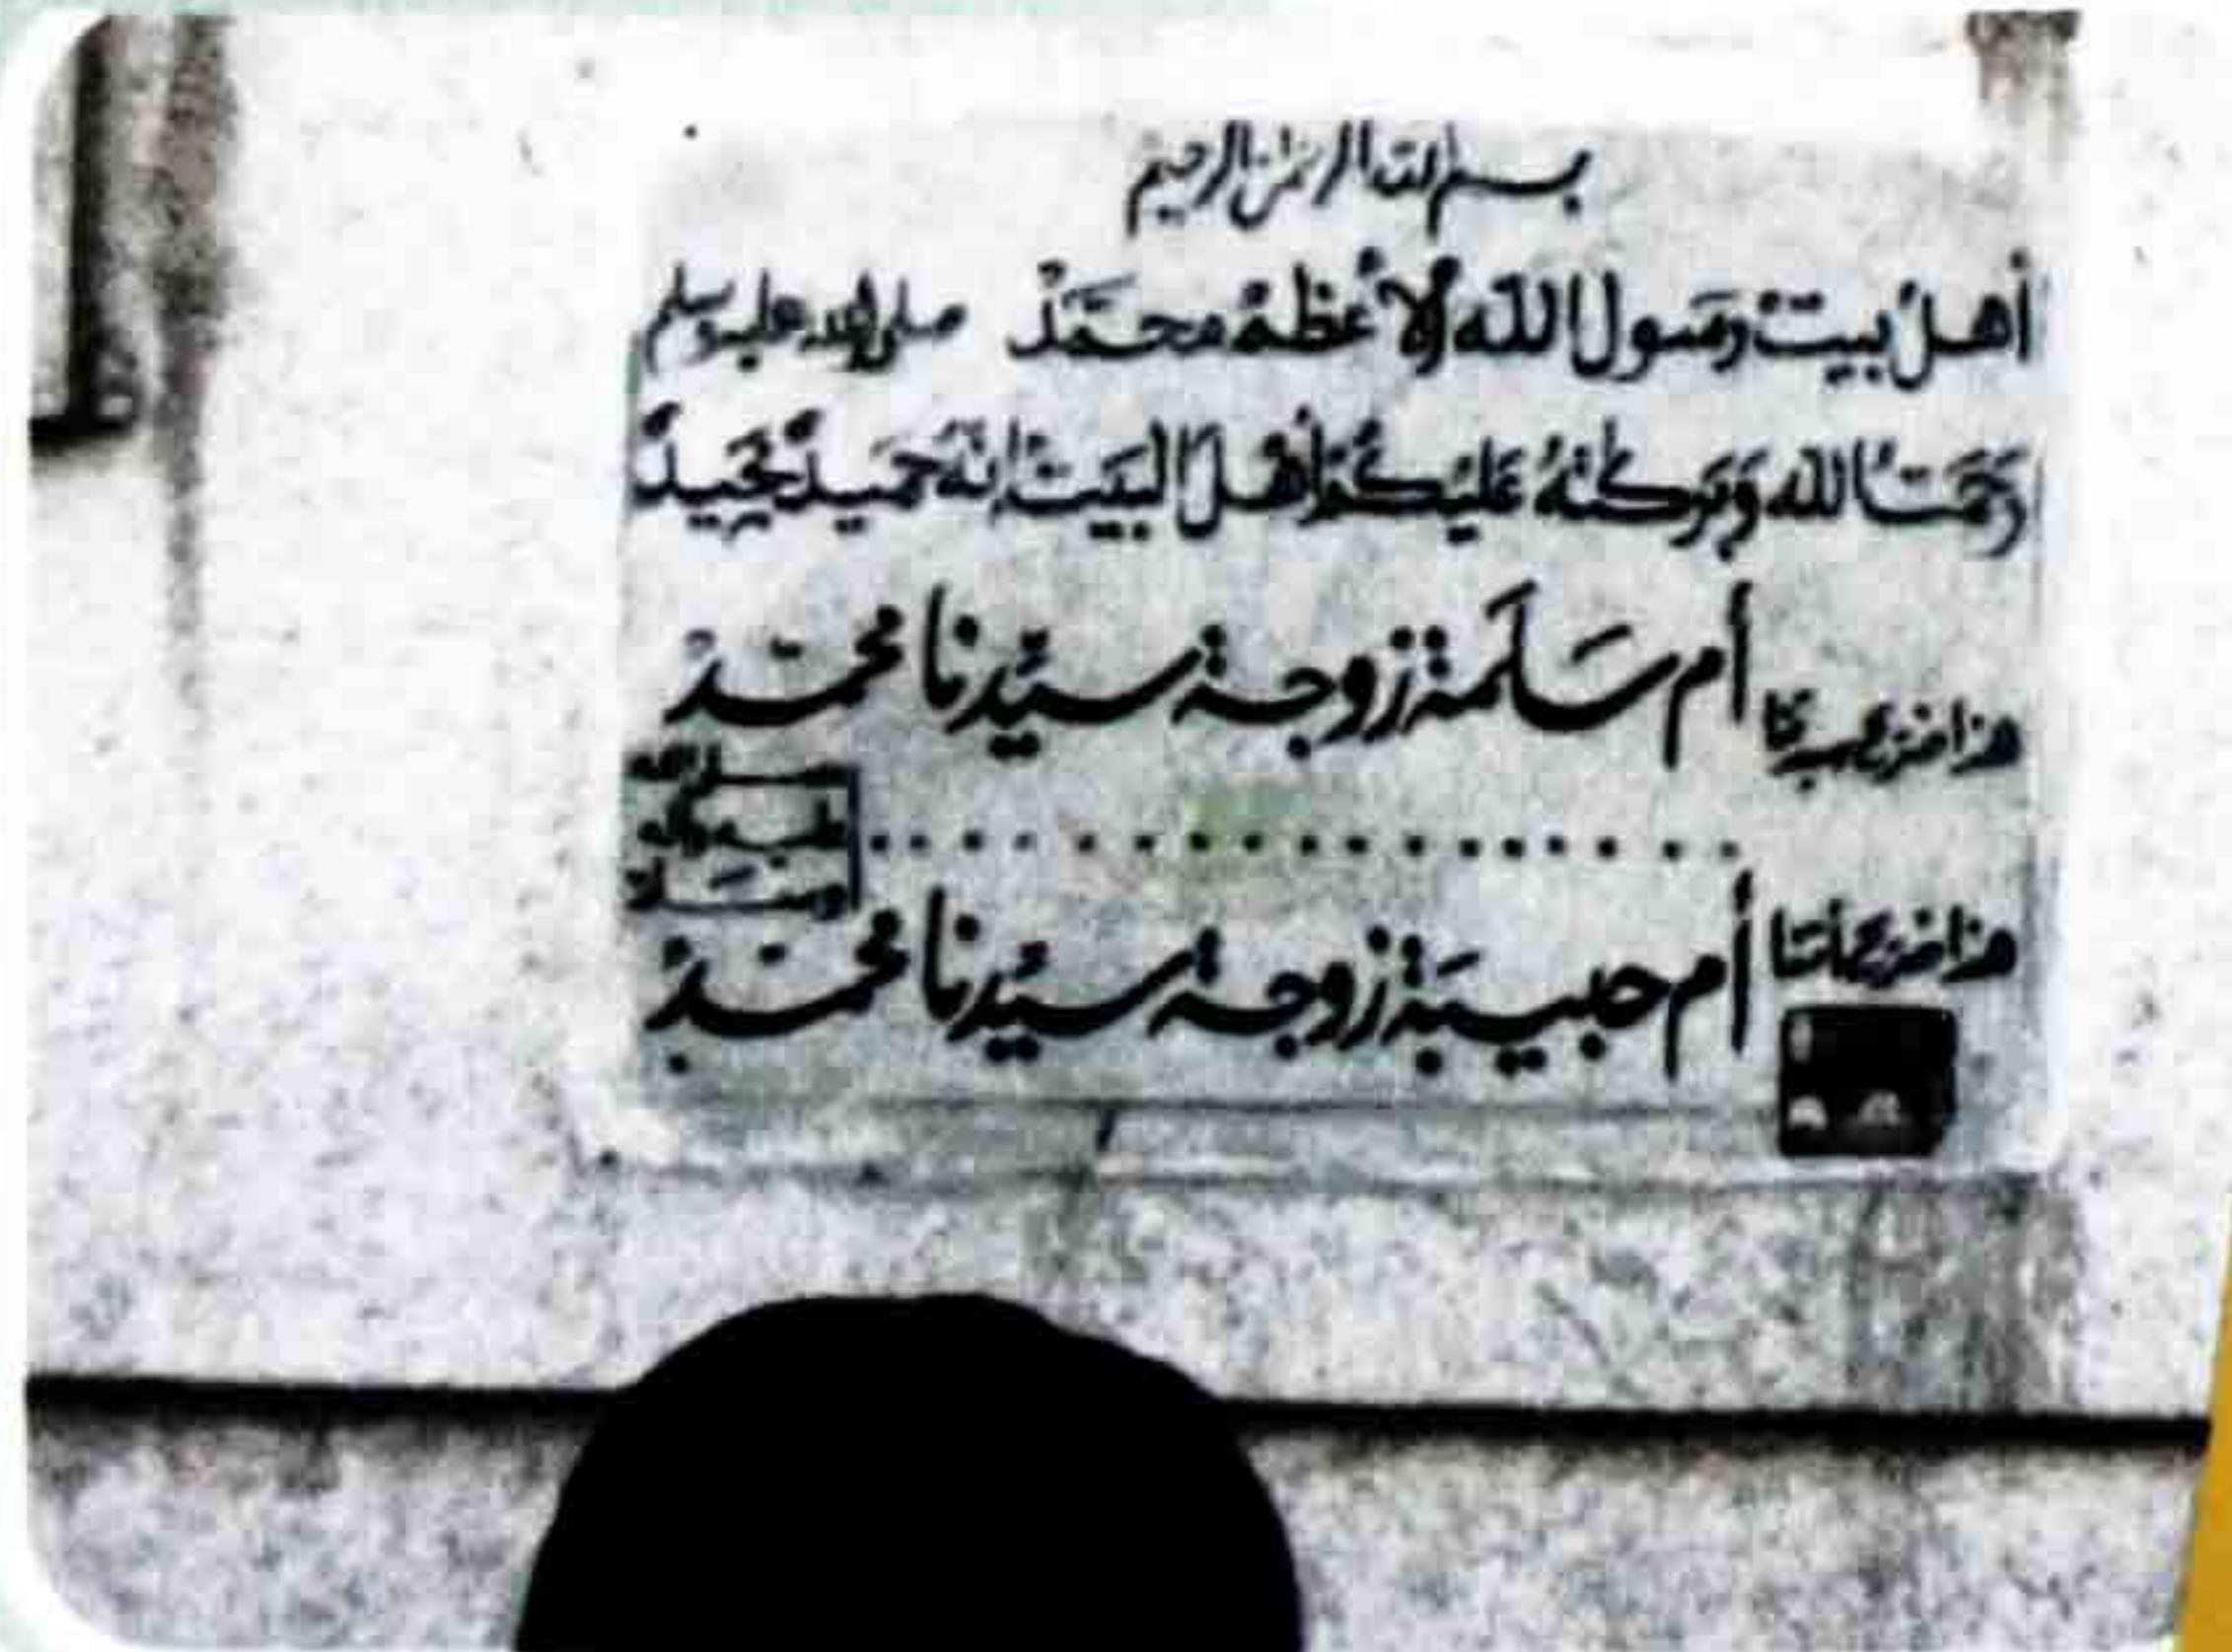 بسم الله الرحمن الرحيم
أهل بيت رسول الله الأعظم محمد صلى الله عليه وسلم
رَحْمَتُ الله وَبَرَكَتُهُ عَلَيْكُمْ أَهْلَ البَيْتِ إِنَّهُ حَمِيدٌ مَجِيدٌ
هذا ضريح أم سَلَمة زوجة سيّدنا محمّد
صلى الله
عليه وآله
وسلم
هذا ضريح أم حبيبَة زوجة سيّدنا محمّد